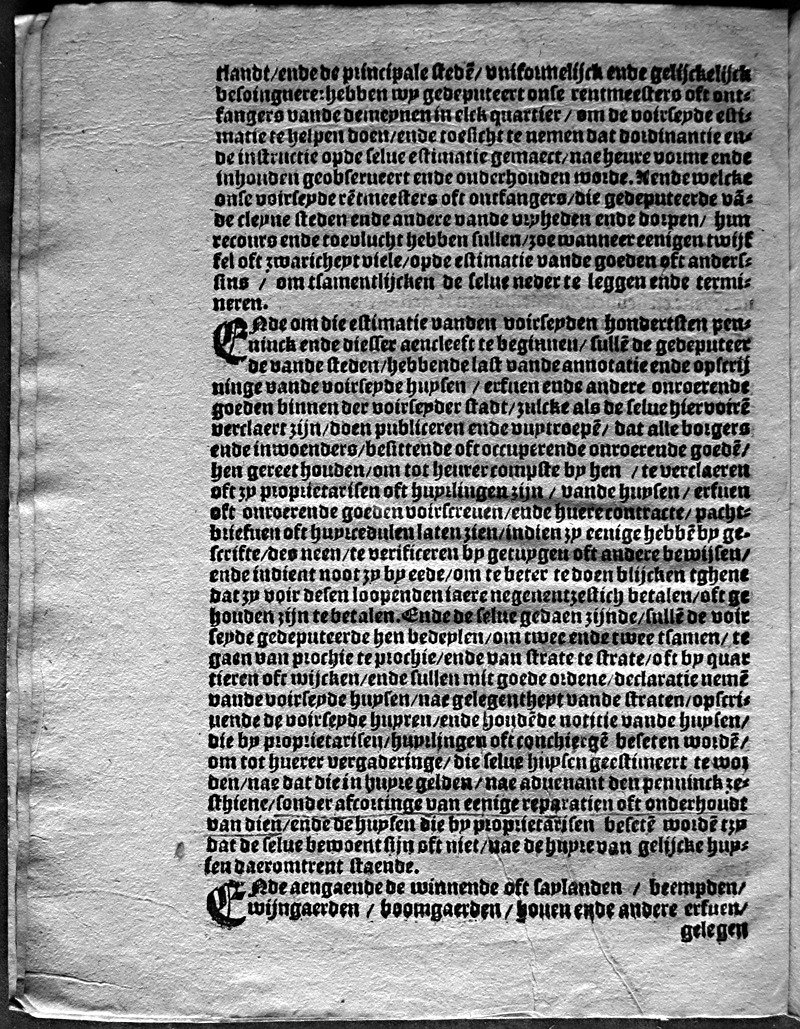 tlandt/ende de principale stedē/ vnifoumelijck ende gelijckelijck
besoinguere:hebben wy gedeputeert onse rentmeesters oft ont-
fangers vande demeynen in elck quartier/ om de voirseyde esti-
matie te helpen doen/ende toesicht te nemen dat dordinantie en-
de instructie opde selue estimatie gemaect/nae heure vorme ende
inhouden geobserueert ende onderhouden worde. Aende welcke
onse voirseyde rētmeesters oft ontfangers/die gedeputeerde vā-
de cleyne steden ende andere vande vryheden ende dorpen/ hun
recours ende toevlucht hebben sullen/zoe wanneer eenigen twijf
fel oft zwaricheyt viele/opde estimatie vande goeden oft anders-
sins / om tsamentlijcken de selue neder te leggen ende termi-
neren.
ENde om die estimatie vanden voirseyden hondertsten pen-
ninck ende diesser aencleeft te beginnen/ sullē de gedeputeer
de vande steden/hebbende last vande annotatie ende opscrij
ninge vande voirseyde huysen / erfuen ende andere onroerende
goeden binnen der voirseyder stadt/zulcke als de selue hiervoirē
verclaert zijn/doen publiceren ende vuytroepē/ dat alle borgers
ende inwoenders/besittende oft occuperende onroerende goedē/
hen gereet houden/om tot heurer compste by hen / te verclaeren
oft zy proprietarisen oft huyrlingen zijn / vande huysen / erfuen
oft onroerende goeden voirscreuen/ende huere contracte/ pacht-
briefuen oft huyrcedulen laten zien/indien zy eenige hebbē by ge-
scrifte/des neen/te verificeren by getuygen oft andere bewijsen/
ende indient noot zy by eede/om te beter te doen blijcken tghene
dat zy voir desen loopenden iaere negenentzestich betalen/oft ge
houden zijn te betalen. Ende de selue gedaen zijnde/sullē de voir
seyde gedeputeerde hen bedeylen/om twee ende twee tsamen/ te
gaen van prochie te prochie/ende van strate te strate/oft by quar
tieren oft wijcken/ende sullen mit goede ordene/declaratie nemē
vande voirseyde huysen/nae gelegentheyt vande straten/opscri-
uende de voirseyde huyren/ende houdēde notitie vande huysen/
die by proprietarisen/huyrlingen oft conchiergē beseten wordē/
om tot huerer vergaderinge/die selue huysen geestimeert te wor
den/nae dat die in huyre gelden/nae aduenant den penninck ze-
sthiene/sonder afcortinge van eenige reparatien oft onderhoudt
van dien/ende de huysen die by proprietarisen besetē wordē tzy
dat de selue bewoent sijn oft niet/nae de huyre van gelijcke huy-
sen daeromtrent staende.
ENde aengaende de winnende oft saylanden / beempden/
wijngaerden / boomgaerden/houen ende andere erfuen/
gelegen